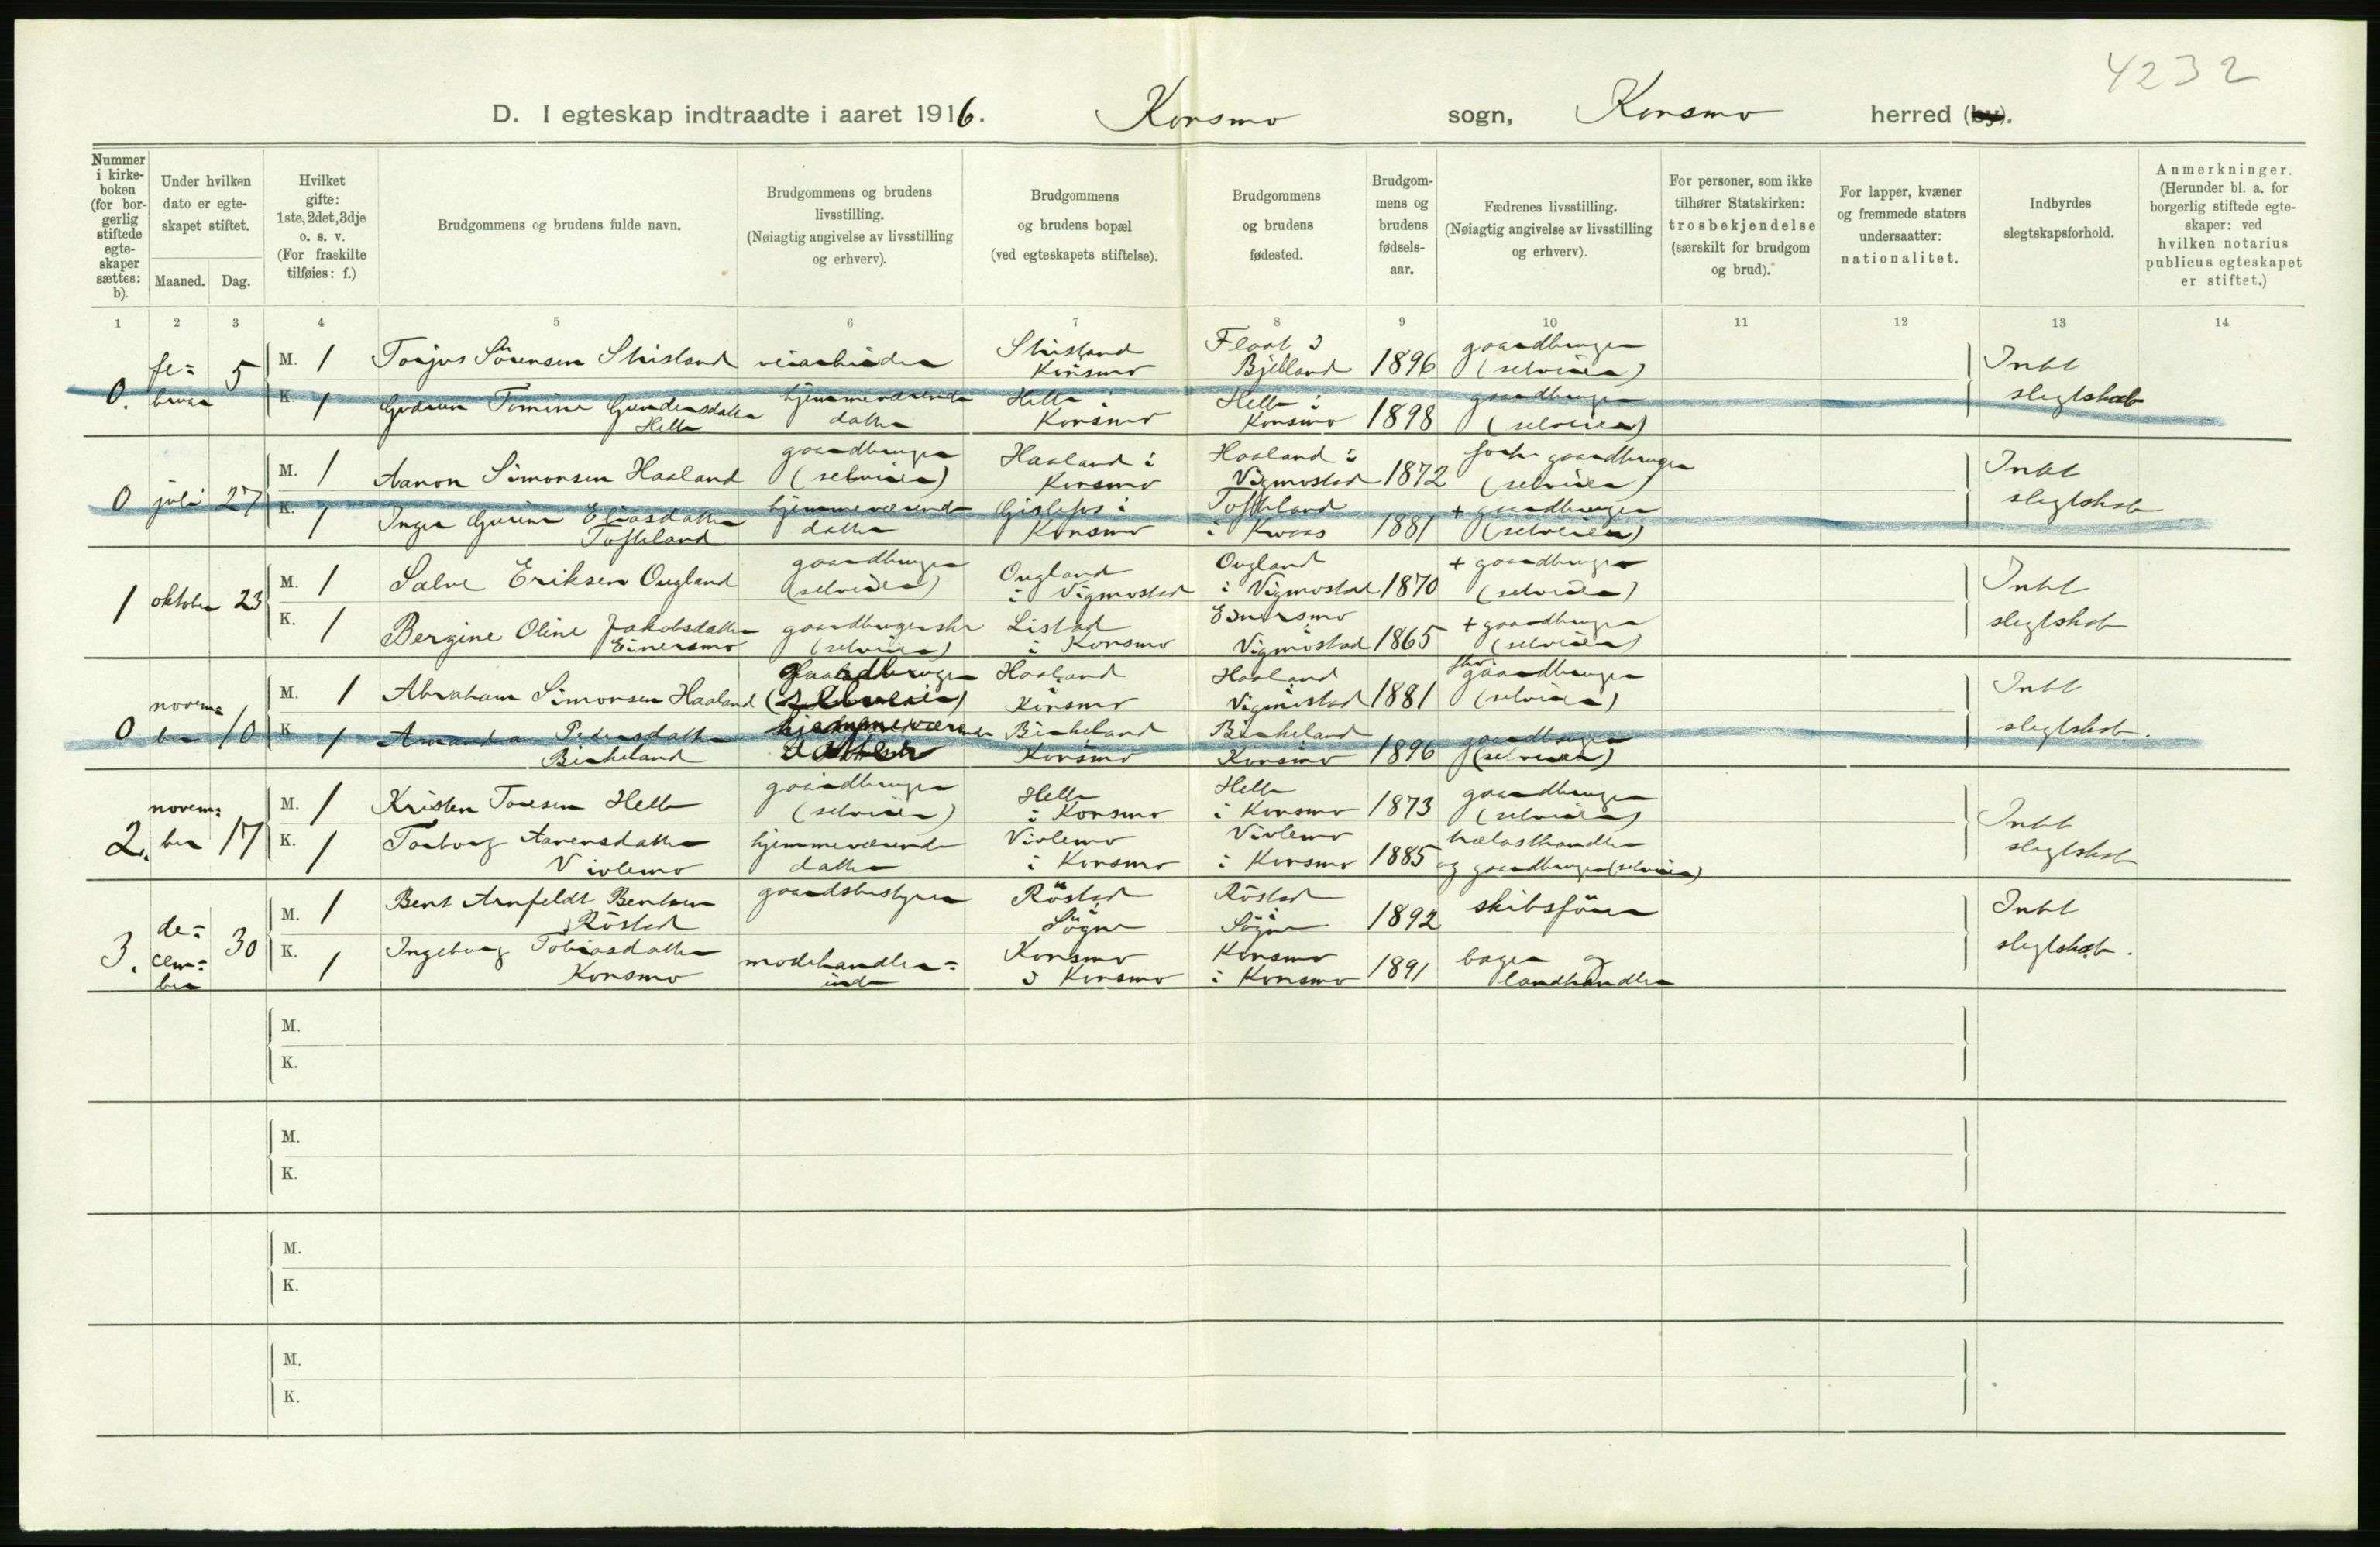 4232
D. I egteskap indtraadte i aaret 1916. Konsmo sogn, Konsmo herred (by).
Nummer i kirke-boken (for bor-gerlig stiftede egte-skaper sættes: b).
Under hvilken dato er egte-skapet stiftet.
Maaned. Dag.
Hvilket gifte: 1ste, 2det, 3dje o. s. v. (For fraskilte tilføies: f.)
Brudgommens og brudens fulde navn.
Brudgommens og brudens livsstilling. (Nøiagtig angivelse av livsstilling og erhverv).
Brudgommens og brudens bopæl (ved egteskapets stiftelse).
Brudgommens og brudens fødested.
Brudgom-mens og brudens fødsels-aar.
Fædrenes livsstilling. (Nøiagtig angivelse av livsstilling og erhverv).
For personer, som ikke tilhører Statskirken: trosbekjendelse (særskilt for brudgom og brud).
For lapper, kvæner og fremmede staters undersaatter: nationalitet.
Indbyrdes slegtskapsforhold.
Anmerkninger. (Herunder bl. a. for borgerlig stiftede egte-skaper: ved hvilken notarius publicus egteskapet er stiftet.)
1 2 3 4 5 6 7 8 9 10 11 12 13 14
0. fe= bruar 5
M. 1 Torjus Sørensen Stusland veiarbeider Konsmo Float i Bjelland 1896 gaardbruger (selveier) Intet
K. 1 Gudrun Tomine Gundersdatter Helle hjemmeværende datter Helle i Konsmo Helle i Konsmo 1898 gaardbruger (selveier) slegtskab
0 juli 27
M. 1 Aanon Simonsen Haaland gaardbruger (selveier) Haaland i Konsmo Haaland i Vigmostad 1872 gaardbruger (selveier) Intet
K. 1 Inger Gurine Eliasdatter Tofteland hjemmeværende datter Gislefos i Konsmo Tofteland i 1881 + gaardbruger (selveier) slegtskab
1 oktober 23
M. 1 Salve Eriksen Ougland gaardbruger (selveier) Ougland i Vigmostad Ougland i Vigmostad 1870 + gaardbruger (selveier) Intet
K. 1 Bergine Oline Jakobsdatter Einersmo gaardbrugerske (selveier) Listad i Konsmo Einersmo Vigmostad 1865 + gaardbruger (selveier) slegtskab
0 novem= ber 10
M. 1 Abraham Simonsen Haaland Gaardbruger (selveier) Haaland Konsmo Haaland Vigmostad 1881 gaardbruger (selveier) Intet
K. 1 Amanda Pedersdatter Birkeland hjemmeværende datter Birkeland Konsmo Birkeland Konsmo 1896 gaardbruger (selveier) slegtskab.
2. novem= ber 17
M. 1 Kristen Toresen Helle gaardbruger (selveier) Helle i Konsmo Helle i Konsmo 1873 gaardbruger (selveier) Intet
K. 1 Torborg Aanensdatter Viblemo hjemmeværende datter Viblemo i Konsmo Viblemo i Konsmo 1885 trælasthandler og gaardbruger (selveier) slegtskab
3. de= cem= ber 30
M. 1 Bent Arnfeldt Bentsen Röstad gaardsbestyrer Röstad Sögne Röstad Sögne 1892 skibsförer Intet
K. 1 Ingeborg Tobiasdatter Konsmo modehandler= inde Konsmo i Konsmo Konsmo i Konsmo 1891 bager og landhandler slegtskab.
M.
K.
M.
K.
M.
K.
M.
K.